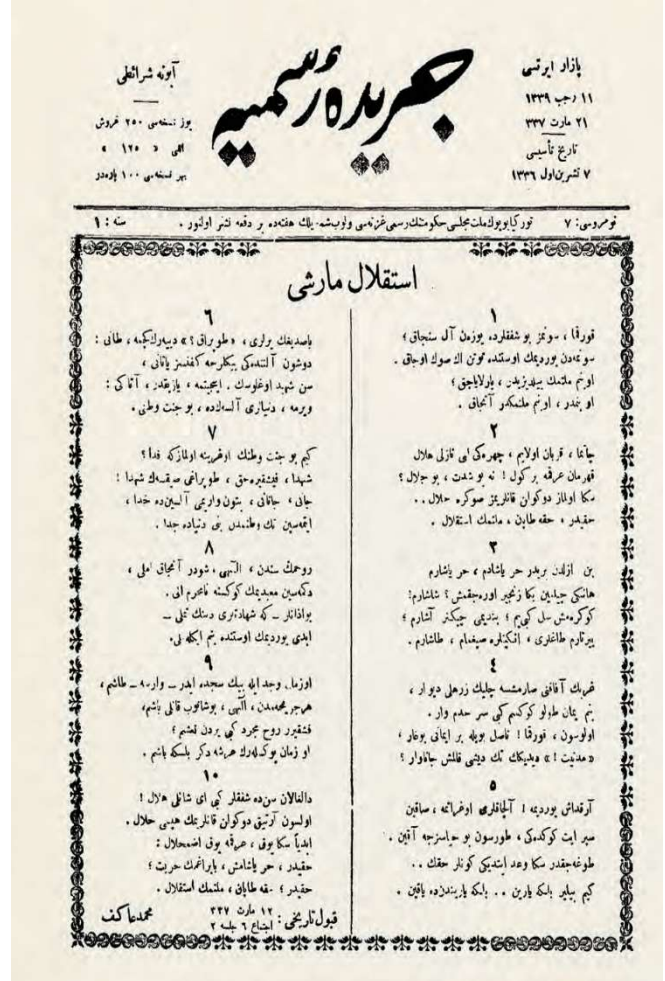 پازار ایرتسی
۱۱ رجب ۱۳۳۹
۲۱ مارت ۳۳۷
تاریخ تأسیسی
۷ تشرین اول ۱۳۳۶
جریدۀ رسمیه
آبونه شرائطی
یوز نسخه‌سی ۲۵۰ غروش
اللی « ۱۲۵ »
بهر نسخه‌سی ۱۰۰ پاره‌در
نومروسی: ۷
تورکیا بویوك ملت مجلسی حکومتنك رسمی غزته‌سی اولوب شمدیلك هفته‌ده بر دفعه نشر اولنور .
سنه : ۱
استقلال مارشی
۱
قورقما ، سونمز بو شفقلرده یوزه‌ن آل سنجاق ؛
سونمه‌دن یوردیمك اوستنده توتن اك صوك اوجاق .
او بنم ملتمك ییلدیزیدر، پارلایاجق ؛
او بنمدر ، او بنم ملتمكدر آنجاق .
۲
چاتما ، قربان اولایم ، چهره‌کی ای نازلی هلال
قهرمان عرقمه بر کول ! نه بو شدت ، بو جلال ؟
سکا اولماز دوکولن قانلریمز صوکره حلال . .
حقیدر ، حقه طاپان ، ملتمك استقلال .
۳
بن ازلدن بریدر حر یاشادم ، حر یاشارم
هانکی چیلغین بکا زنجیر اوره‌جقمش ؟ شاشارم!
کوکره‌مش سل کبی‌یم ؛ بندیمی چیکنر آشارم ؛
ییرتارم طاغلری ، انکینلره صیغمام ، طاشارم .
٤
غربك آفاقنی صارمشسه چلیك زرهلی دیوار ،
بنم ایمان طولو کوکسم کبی سر حدم وار .
اولوسون ، قورقما ! ناصل بویله بر ایمانی بوغار ،
« مدنیت ! » دیدیکك تك دیشی قالمش جاناوار ؟
۵
آرقداش یوردیمه ! آلچاقلری اوغراتمه ، صاقین
سپر ایت کوکده‌کی ، طورسون بو حیاسزجه آقین .
طوغه‌جقدر سکا وعد ایتدیکی کونلر حقك . .
کیم بیلیر بلکه یارین . . بلکه یاریندن‌ده یاقین .
۶
باصدیغك یرلری ، « طوپراق ! » دییه‌رك کچمه ، طانی :
دوشون آلتنده‌کی بیکلرجه کفنسز یاتانی ،
سن شهید اوغلوسك . اینجیتمه ، یازیقدر ، آتاکی :
ویرمه ، دنیالری آلسه‌ك‌ده ، بو جنت وطنی .
۷
کیم بو جنت وطنك اوغرینه اولمازکه فدا ؟
شهدا ، فیشقیره‌جق ، طوپراغی صیقسه‌ك شهدا !
جانی ، جانانی ، بتون واریمی آلسین‌ده خدا ،
ایتمه‌سین تك وطنمدن بنی دنیاده جدا .
۸
روحمك سندن ، الٓهی ، شودر آنجاق املی ،
دکمه‌سین معبدیمك کوکسنه نامحرم الی .
بو اذانلر ــ که شهادتلری دینك تملی ــ
ابدی یوردیمك اوستنده بنم ایکله‌ملی .
۹
او زمان وجد ایله بیك سجده ایدر ــ وارسه ــ طاشم ،
هر جریحه‌مدن ، الٓهی ، بوشانوب قانلی یاشم،
فیشقیرر روح مجرد کبی یردن نعشم ؛
او زمان یوکسه‌له‌رك عرشه دکر بلکه باشم .
۱۰
دالغالان سن‌ده شفقلر کبی ای شانلی هلال !
اولسون آرتیق دوکولن قانلریمك هپسی حلال .
ابدیاً سکا یوق ، عرقمه یوق اضمحلال :
حقیدر ، حر یاشامش ، بایراغمك حریت ؛
حقیدر ؛ حقه طاپان ، ملتمك استقلال .
قبول تاریخی : ۱۲ مارت ۳۳۷
اجتماع ۶ جلسه ۲
محمد عاکف